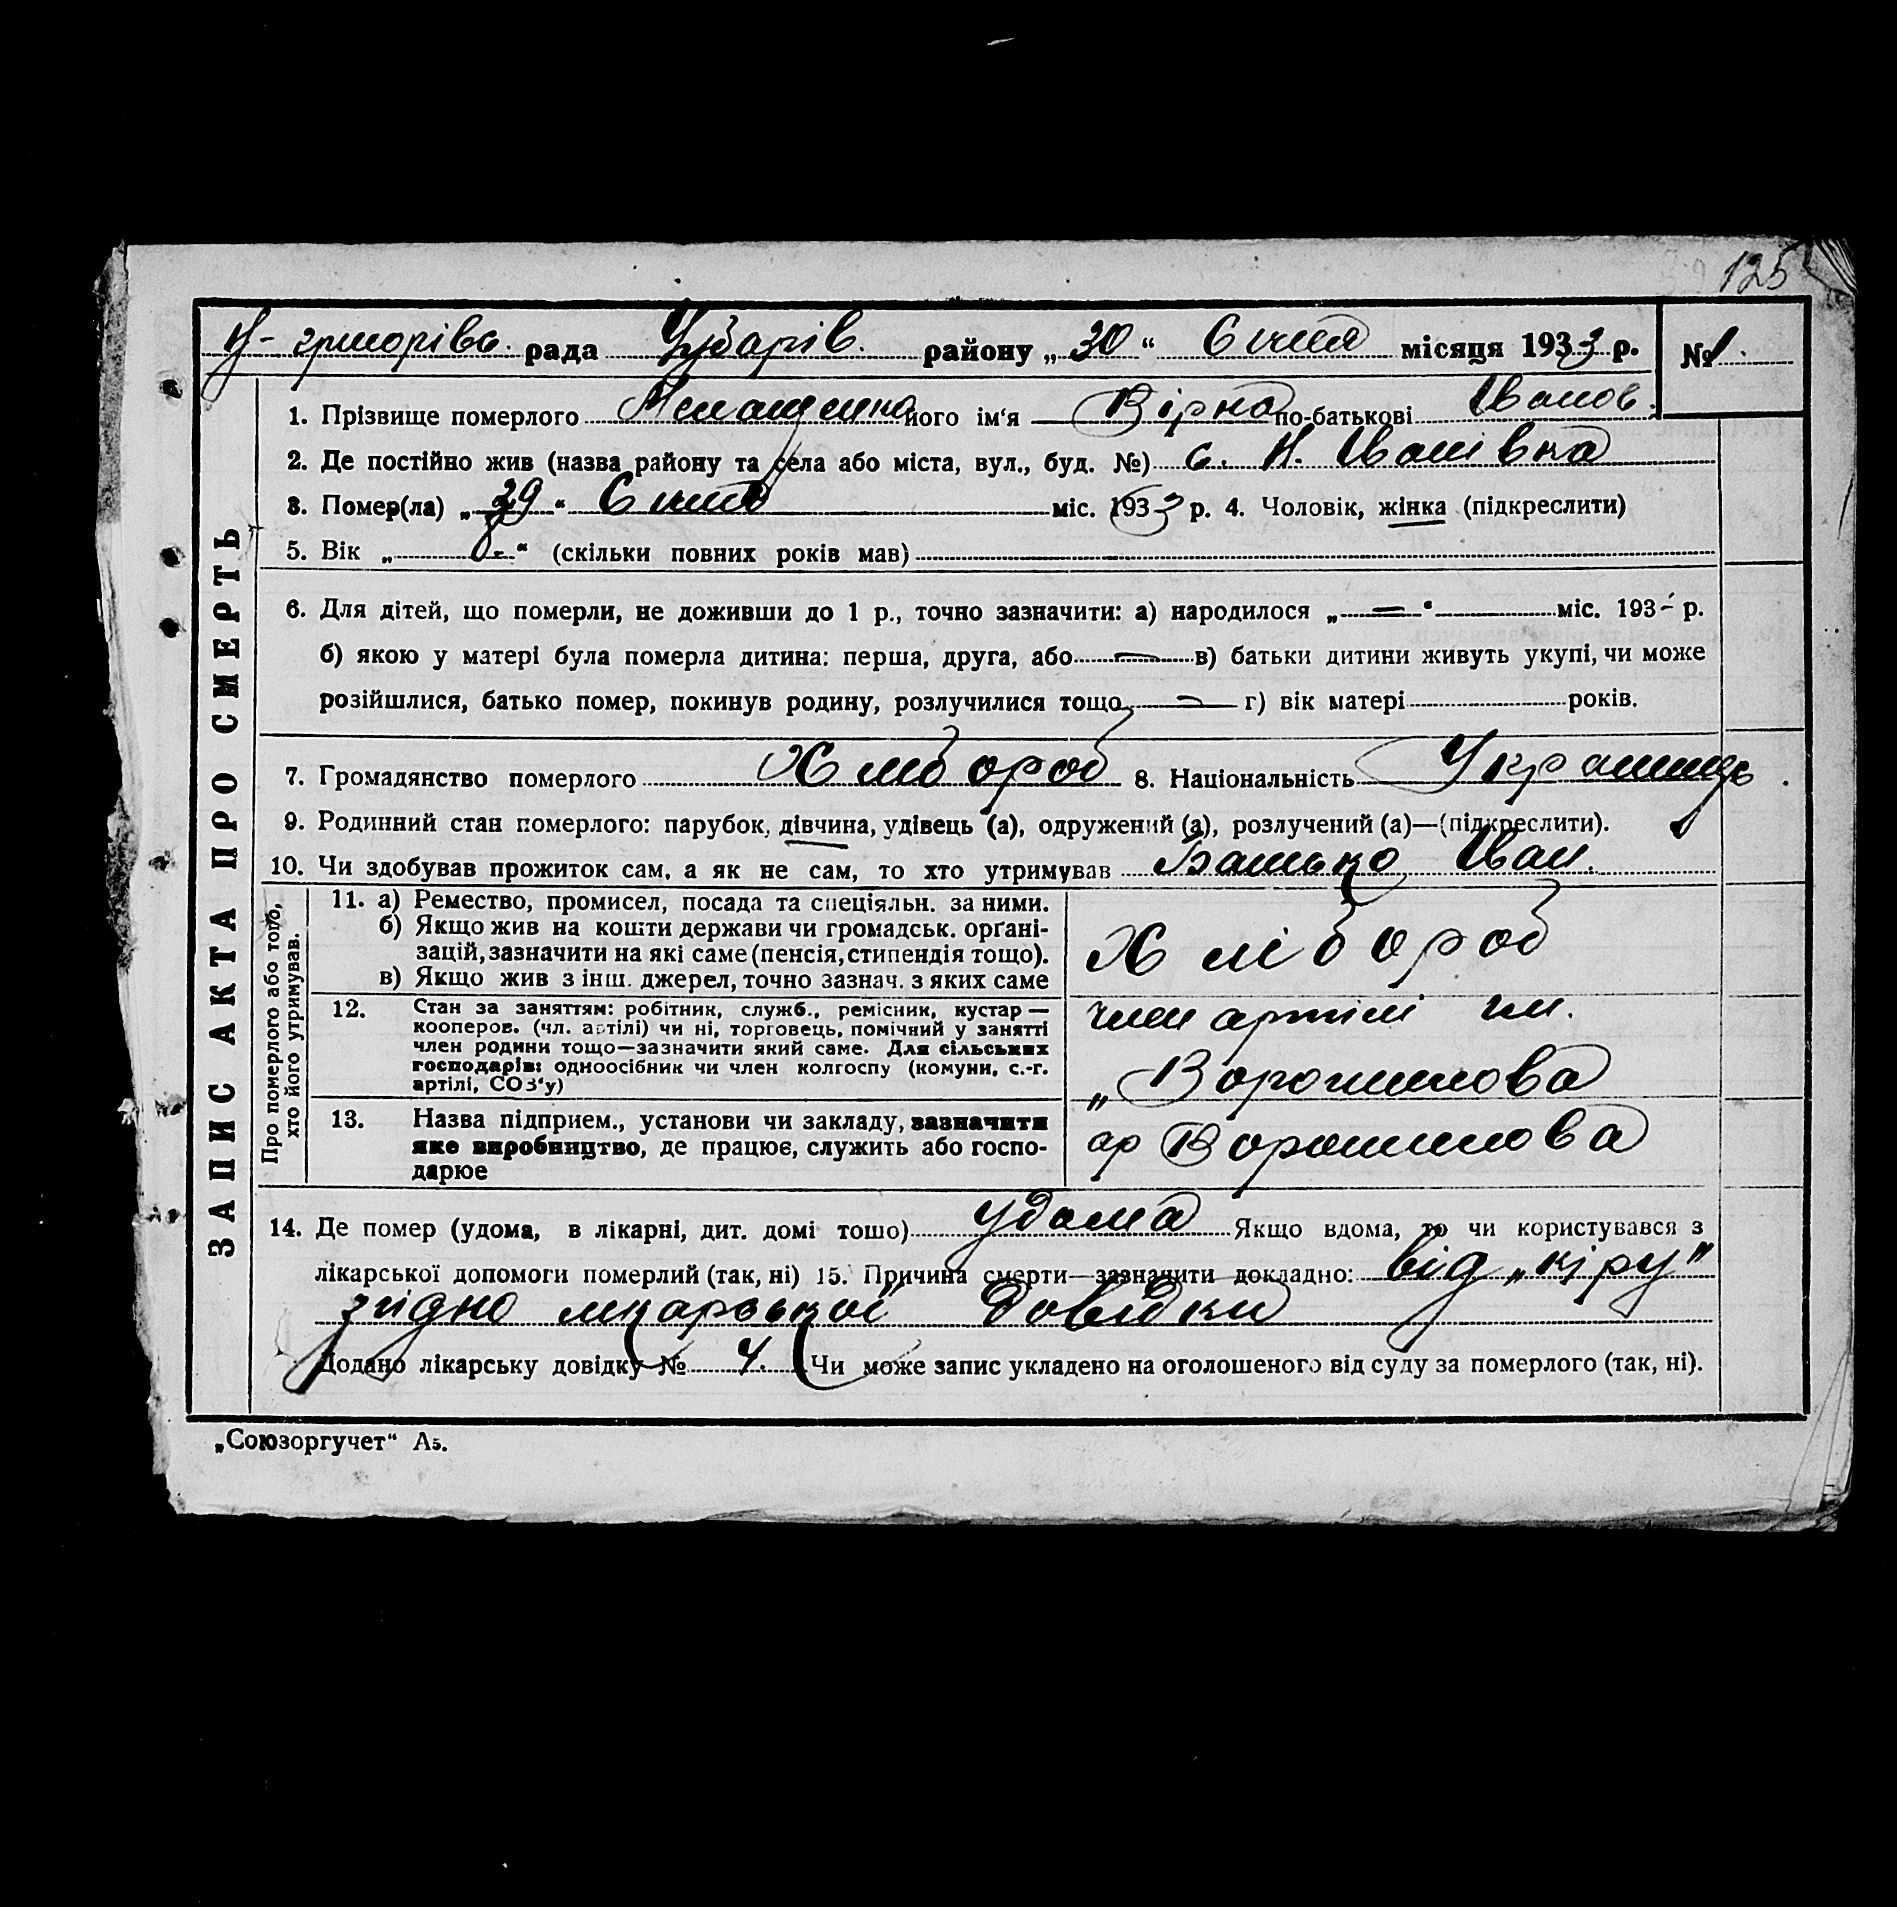 125
рада Чубарів. району „30“ Січня місяця 1933 р. № 1.
ЗАПИС АКТА ПРО СМЕРТЬ
1. Прізвище померлого його ім‘я Вірка по-батькові Іванов.
2. Де постійно жив (назва району та села або міста, вул., буд. №) с. Н. Іванівка
3. Помер(ла) „29“ Січня міс. 1933 р. 4. Чоловік, жінка (підкреслити)
5. Вік „8.“ (скільки повних років мав)
6. Для дітей, що померли, не доживши до 1 р., точно зазначити: а) народилося „—“ міс. 193- р.
б) якою у матері була померла дитина: перша, друга, або — в) батьки дитини живуть укупі, чи може
розійшлися, батько помер, покинув родину, розлучилися тощо — г) вік матері років.
7. Громадянство померлого Хлібороб 8. Національність Українець
9. Родинний стан померлого: парубок, дівчина, удівець (а), одружений (а), розлучений (а)—(підкреслити).
10. Чи здобував прожиток сам, а як не сам, то хто утримував Батько Іван.
Про померлого або того, хто його утримував.
11. а) Ремество, промисел, посада та спеціяльн. за ними.
б) Якщо жив на кошти держави чи громадськ. орґані-
зацій, зазначити на які саме (пенсія, стипендія тощо).
в) Якщо жив з інш. джерел, точно зазнач. з яких саме
Хлібороб
12. Стан за заняттям: робітник, служб., ремісник, кустар—
кооперов. (чл. артілі) чи ні, торговець, помічний у занятті
член родини тощо—зазначити який саме. Для сільських
господарів: одноосібник чи член колгоспу (комуни, с.-г.
артілі, СОЗ‘у)
член артілі ім.
„Ворошилова
13. Назва підприєм., установи чи закладу, зазначити
яке виробництво, де працює, служить або госпо-
дарює
ар Ворошилова
14. Де помер (удома, в лікарні, дит. домі тошо) удома Якщо вдома, то чи користувався з
лікарської допомоги померлий (так, ні) 15. Причина смерти—зазначити докладно: від „кіру“
згідно лікарської довідки
Додано лікарську довідку № 4. Чи може запис укладено на оголошеного від суду за померлого (так, ні).
„Союзоргучет“ А5.